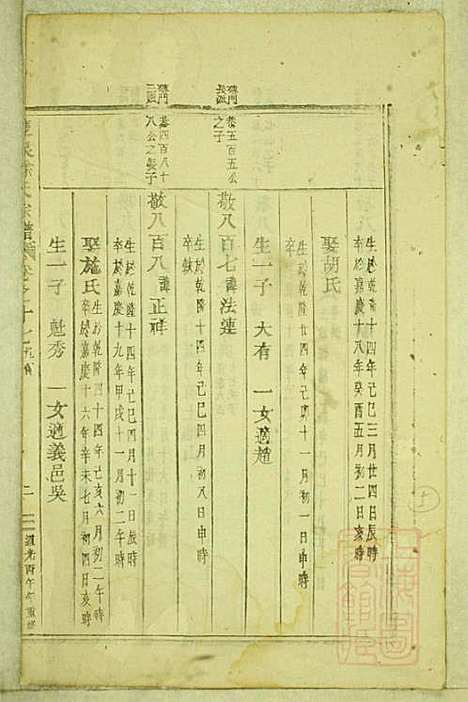 生於乾隆十四年己巳三月廿四日辰時
卒於嘉慶十八年癸酉五月初二日亥時
娶胡氏
生於乾隆四十四年己亥十一月初一日時
卒於 年 月 日 時
生一子 大有 一女適趙
長派
恭五百五公
之子
敬八百七諱法蓮
生於乾隆十四年己巳四月初八日申時
卒缺
三派
恭四百八十
八公之長子
敬八百八諱正祥
生於乾隆十四年己巳四月十一日辰時
卒於嘉慶十九年甲戌十一月初二午時
娶施氏
生於乾隆四十四年己亥六月初二午時
卒於嘉慶十六年辛未七月初四日亥時
生一子 魁秀 一女適義邑吳
宗譜
道光丙午年重修